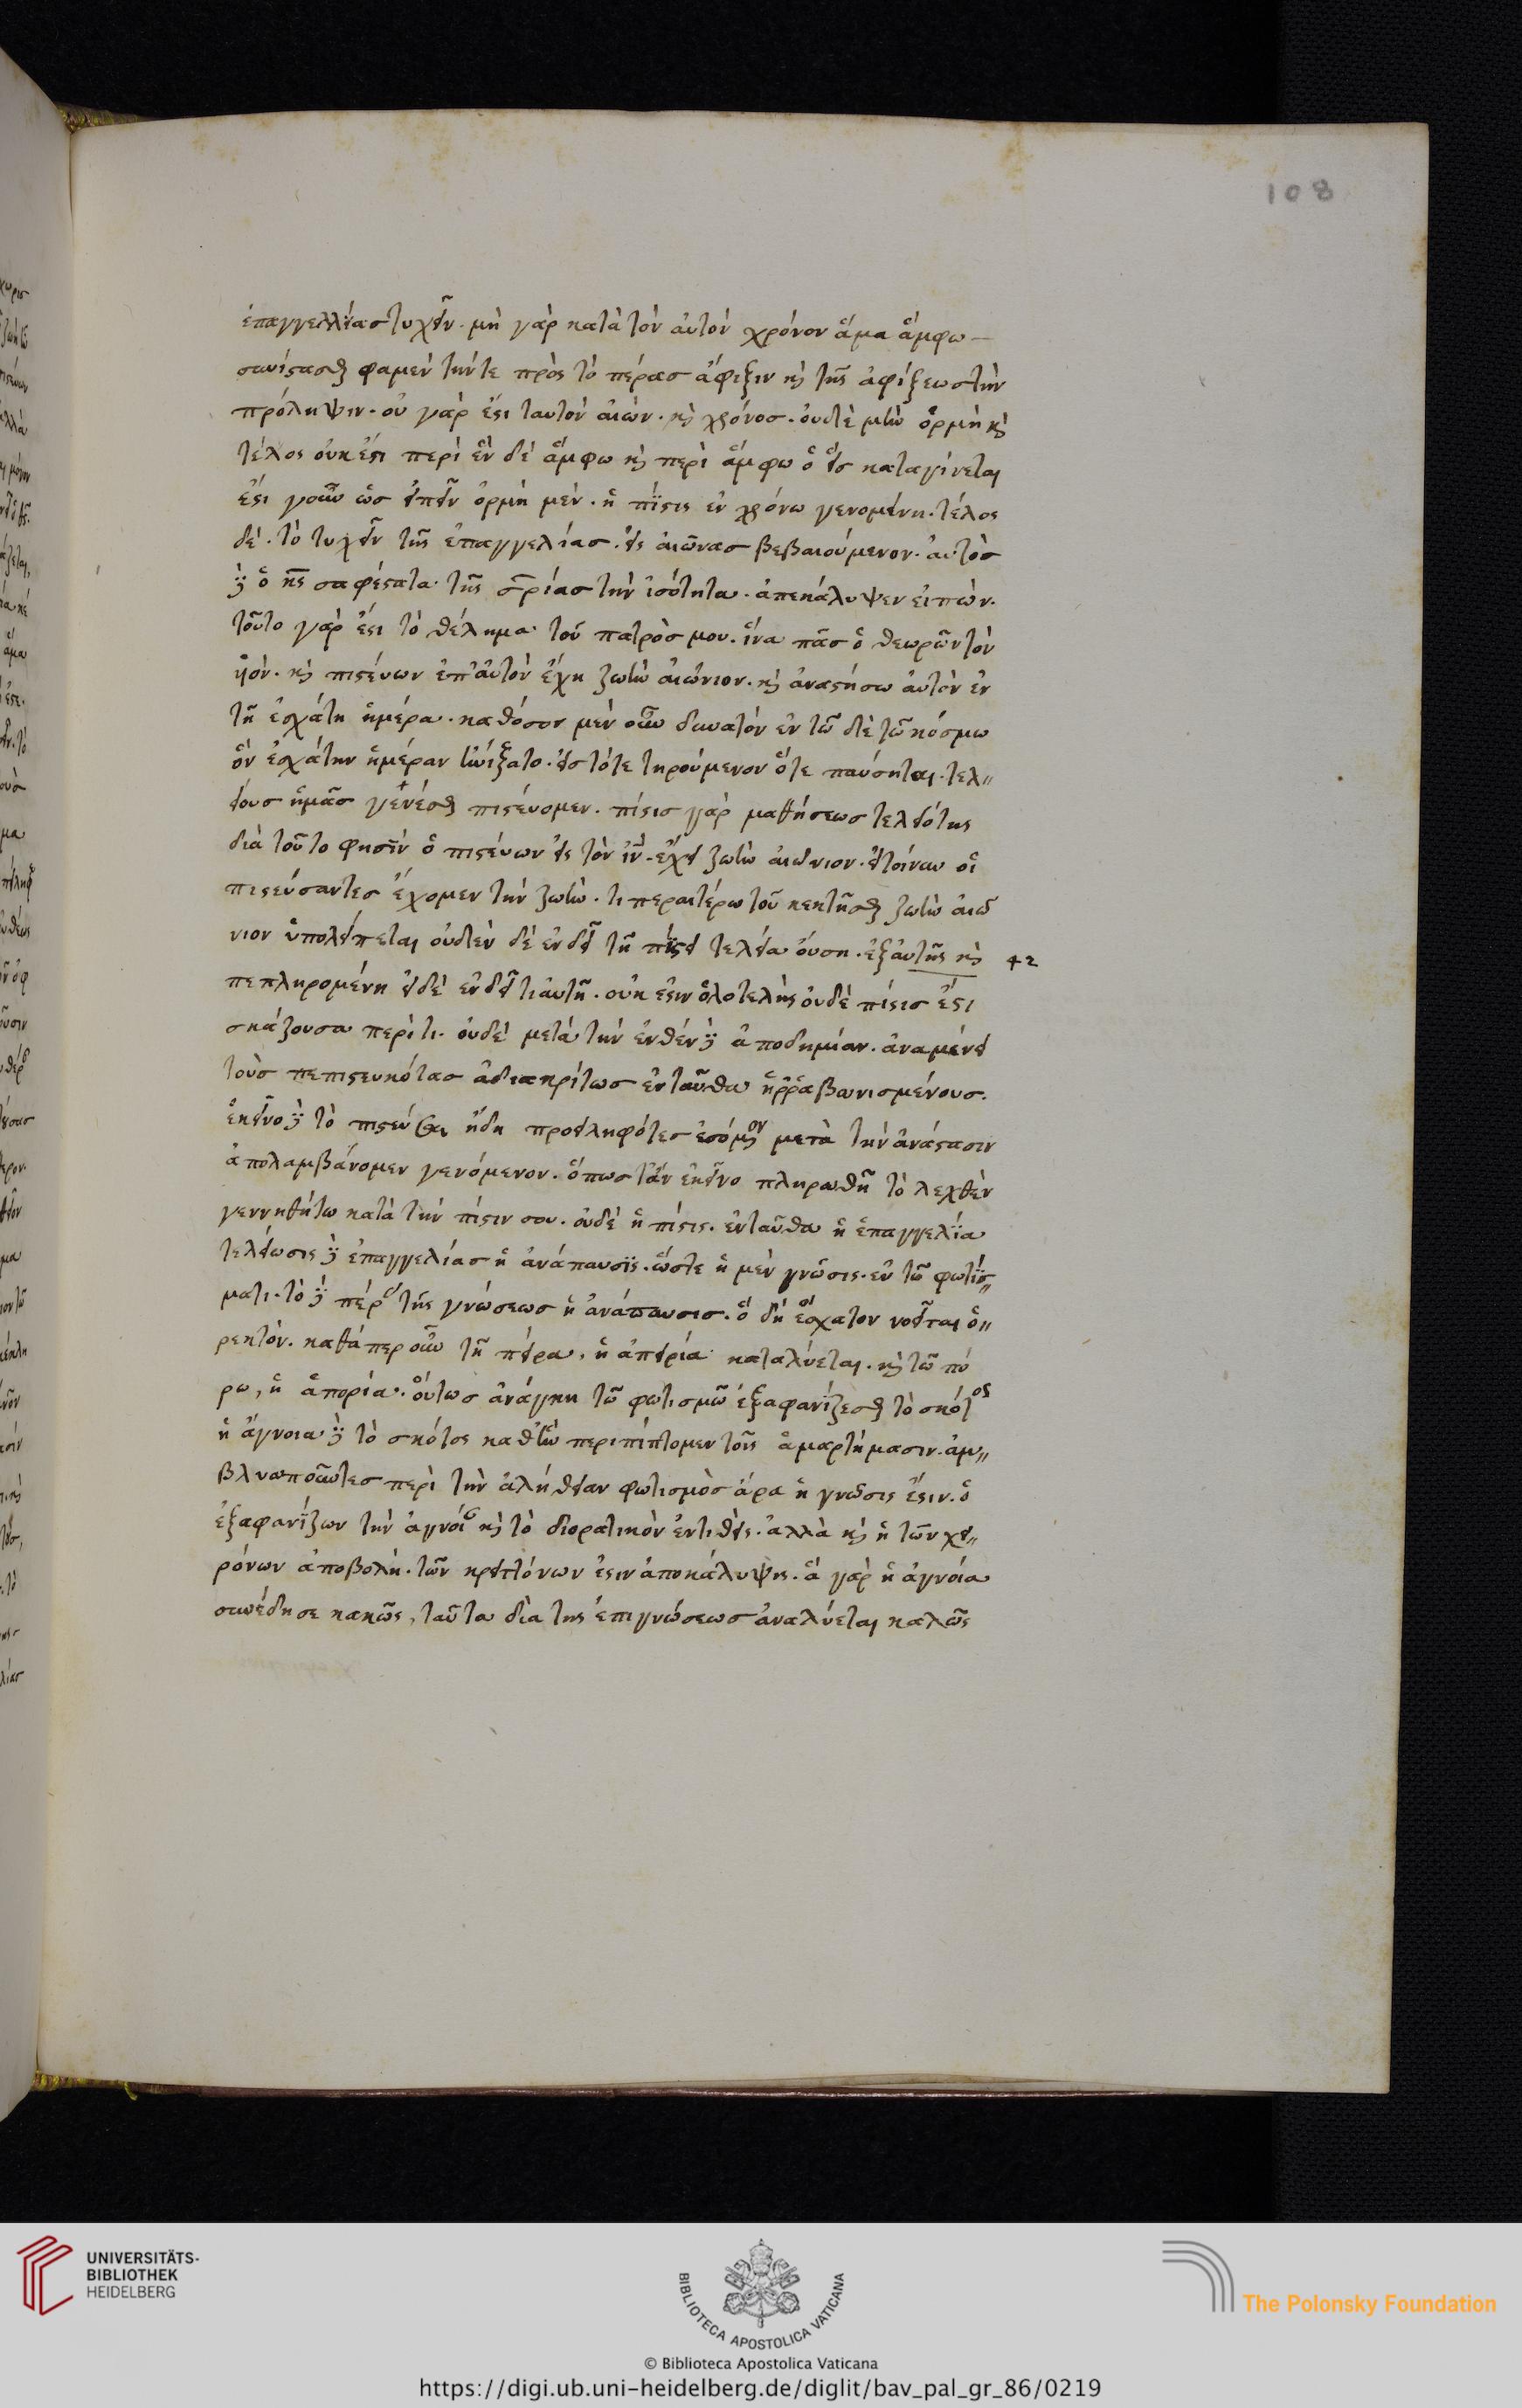 108
ἐπαγγελλίας τυχεῖν. μὴ γὰρ κατὰ τὸν αὐτὸν χρόνον ἅμα ἄμφω
συνίστασθαι φαμὲν τήν τε πρὸς τὸ πέρας ἄφιξιν καὶ τῆς ἀφίξεως τὴν
πρόληψιν. οὐ γάρ ἐστι ταυτὸν αἰών. καὶ χρόνος. οὐδὲ μὴν ὁρμὴ καὶ
τέλος οὐκ ἔστι περὶ ἓν δὲ ἄμφω καὶ περὶ ἄμφω ὁ εἷς καταγίνεται
ἔστι γοῦν ὡς εἰπεῖν ὁρμὴ μὲν. ἡ πίστις ἐν χρόνω γενομένη. τέλος
δὲ. τὸ τυχεῖν τῆς ἐπαγγελίας. εἰς αἰῶνας βεβαιούμενον. αὐτὸς
δὲ ὁ κς σαφέστατα τῆς σριας τὴν ἰσότητα. ἀπεκάλυψεν εἰπών.
τοῦτο γάρ ἐστι τὸ θέλημα τοῦ πατρός μου. ἵνα πᾶς ὁ θεωρῶν τὸν
υἱόν. καὶ πιστεύων ἐπ' αὐτὸν ἔχη ζωὴν αἰώνιον. καὶ ἀναστήσω αὐτὸν ἐν
τῆ ἐσχάτη ἡμέρα. καθόσον μὲν οὖν δυνατὸν ἐν τῶδε τῶ κόσμω
ὃν ἐσχάτην ἡμέραν ἠνίξατο. εἰς τότε τηρούμενον ὅτε παύσηται. τελ〃
είους ἡμᾶς γενέσθαι πιστεύομεν. πίστις γὰρ μαθήσεως τελειότης
διὰ τοῦτο φησὶν ὁ πιστεύων εἰς τὸν ὑν. ἔχει ζωὴν αἰώνιον. εἰ τοίνυν οἱ
πιστεύσαντες ἔχομεν τὴν ζωὴν. τι περαιτέρω τοῦ κεκτῆσθαι ζωὴν αἰώ
νιον ὑπολείπεται οὐδὲν δὲ ἐνδεῖ τῆ πίστει τελεία οὔση. ἐξ αὐτῆς καὶ 42
πεπληρομένη εἰ δὲ ἐνδεῖ τι αὐτῆ. οὐκ ἔστιν ὁλοτελὴς οὐδὲ πίστις ἔστι
σκάζουσα περί τι. οὐδὲ μετὰ τὴν ἐνθένδε ἀποδημίαν. ἀναμένει
τοὺς πεπιστευκότας ἀδιακρίτως ἐνταῦθα ἠρραβωνισμένους.
ἐκεῖνο δὲ τὸ πιστεῦσαι ἤδη προειληφότες ἐσόμενον μετὰ τὴν ἀνάστασιν
ἀπολαμβάνομεν γενόμενον. ὅπως τἂν ἐκεῖνο πληρωθῆ τὸ λεχθὲν
γεννηθήτω κατὰ τὴν πίστιν σου. οὐδὲ ἡ πίστις. ἐνταῦθα ἡ ἐπαγγελία
τελείωσις δὲ ἐπαγγελίας ἡ ἀνάπαυσις. ὥστε ἡ μὲν γνῶσις. ἐν τῶ φωτίσ〃
ματι. τὸ δὲ πέρας τῆς γνώσεως ἡ ἀνάπαυσις. ὃ δὴ ἔσχατον νοεῖται ὀ〃
ρεκτόν. καθάπερ οὖν τῆ πείρα. ἡ ἀπειρία καταλύεται. καὶ τῶ πό
ρω, ἡ ἀπορία. οὕτως ἀνάγκη τῶ φωτισμῶ ἐξαφανίζεσθαι τὸ σκότος
ἡ ἄγνοια δὲ τὸ σκότος καθ' ἣν περιπίπτομεν τοῖς ἁμαρτήμασιν. ἀμ〃
βλυωποῦντες περὶ τὴν ἀλήθειαν φωτισμὸς ἄρα ἡ γνῶσις ἔστιν. ὁ
ἐξαφανίζων τὴν ἄγνοιαν καὶ τὸ διορατικὸν ἐντιθείς. ἀλλὰ καὶ ἡ τῶν χει〃
ρόνων ἀποβολὴ. τῶν κρειττόνων ἐστιν ἀποκάλυψις. ἃ γὰρ ἡ ἀγνοία
συνέδησε κακῶς, ταῦτα δὶα τῆς ἐπιγνώσεως ἀναλύεται καλῶς
UNIVERSITÄTS-
BIBLIOTHEK
HEIDELBERG
BIBLIOTECA APOSTOLICA VATICANA
The Polonsky Foundation
© Biblioteca Apostolica Vaticana
https://digi.ub.uni-heidelberg.de/diglit/bav_pal_gr_86/0219